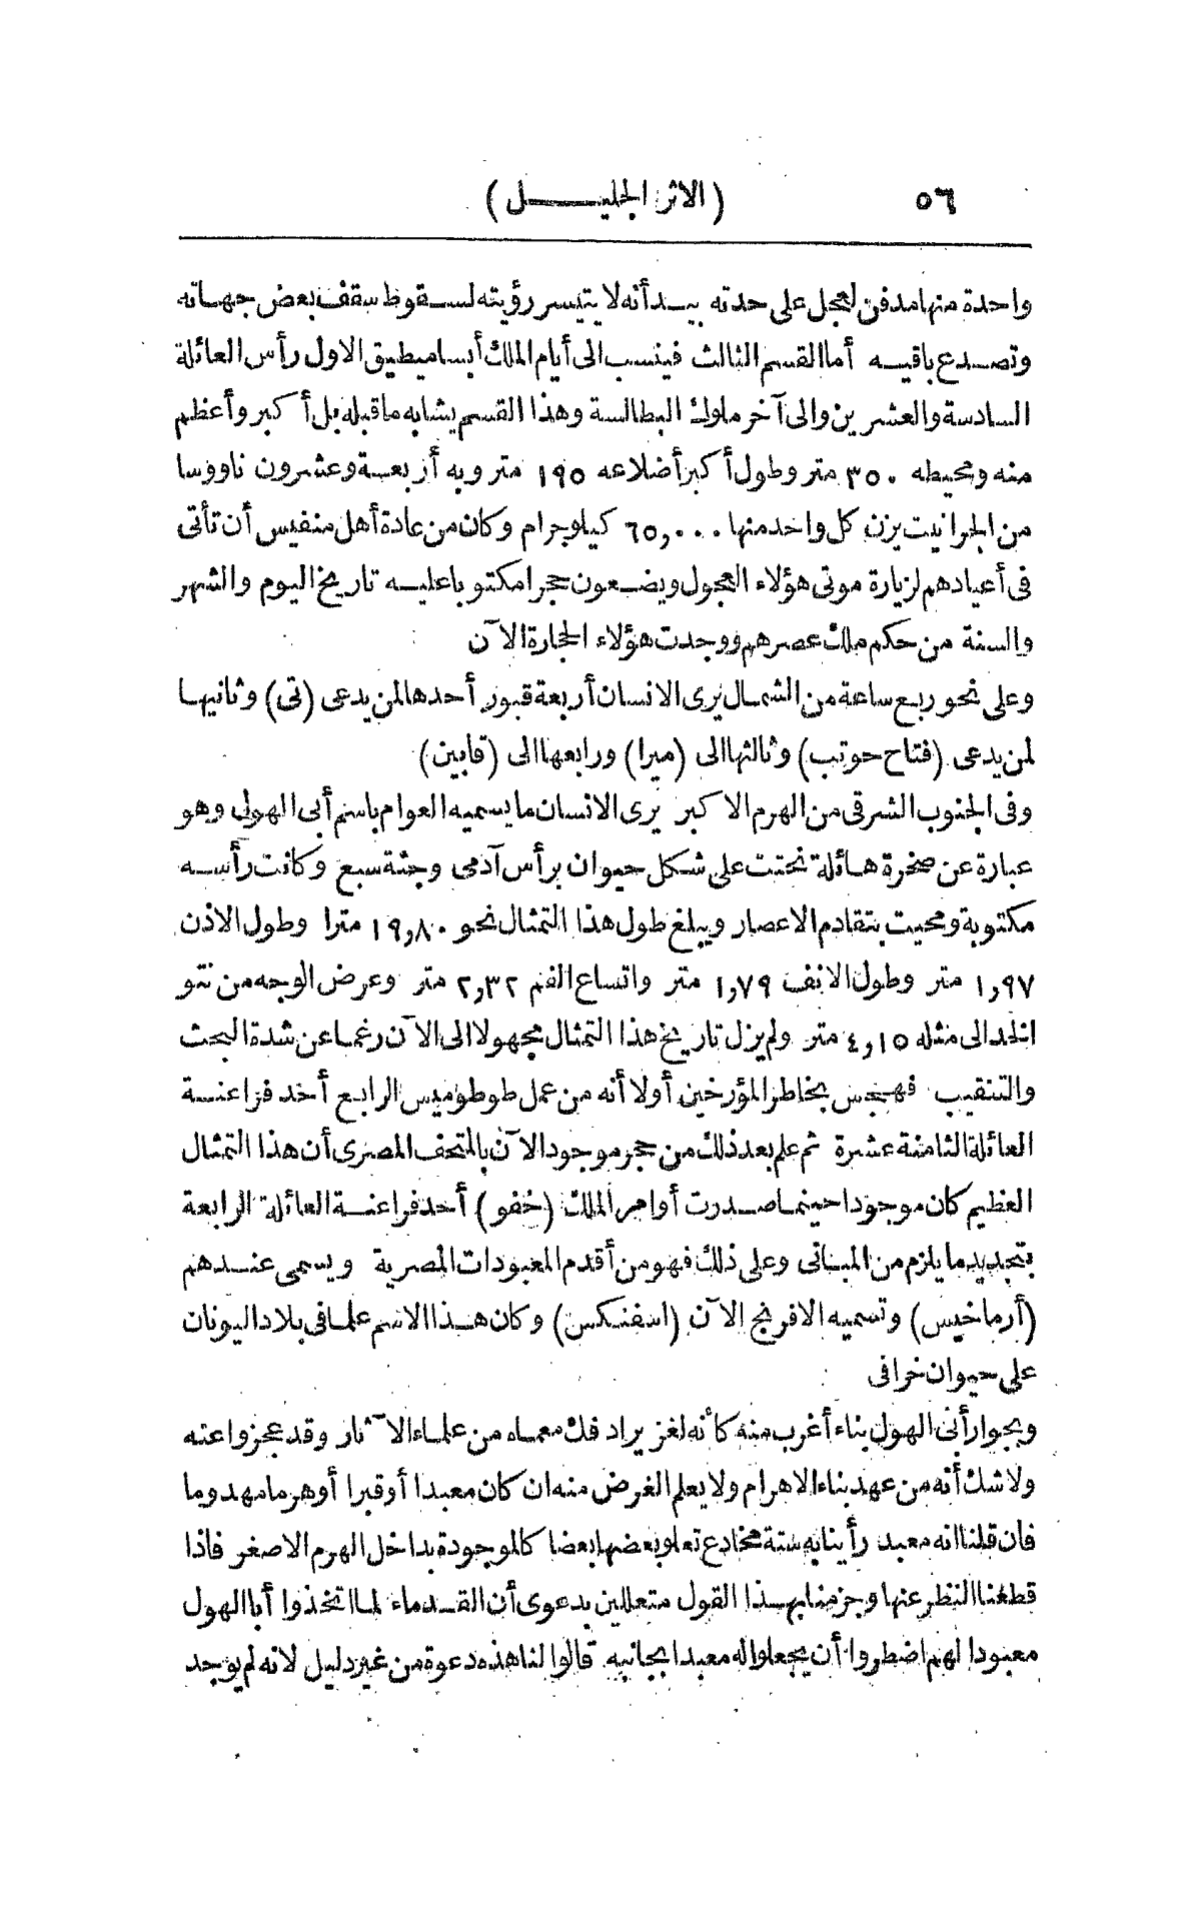 ٥٦ (الاثر الجليل)
واحدة منها مدفن لعجل على حدته بيد أنه لا يتيسر رؤيته لسقوط سقف بعض جهاته
وتصدع باقيه أما القسم الثالث فينسب الى أيام الملك أبساميطيق الاول رأس العائلة
السادسة والعشرين والى آخر ملوك البطالسة وهذا القسم يشابه ما قبله بل أكبر وأعظم
منه ومحيطه ٣٥٠ متر وطول أكبر أضلاعه ١٩٥ متر وبه أربعة وعشرون ناووسا
من الجرانيت يزن كل واحد منها ٦٥,٠٠٠ كيلوجرام وكان من عادة أهل منفيس أن تأتى
فى أعيادهم لزيارة موتى هؤلاء العجول ويضعون حجرا مكتوبا عليه تاريخ اليوم والشهر
والسنة من حكم ملك عصرهم ووجدت هؤلاء الحجارة الآن
وعلى نحو ربع ساعة من الشمال يرى الانسان أربعة قبور أحدها لمن يدعى (تى) وثانيها
لمن يدعى (فتاح حوتب) وثالثها الى (ميرا) ورابعها الى (قابين)
وفى الجنوب الشرقى من الهرم الاكبر يرى الانسان ما يسميه العوام باسم أبى الهول وهو
عبارة عن صخرة هائلة نحتت على شكل حيوان برأس آدمى وجثة سبع وكانت رأسه
مكتوبة ومحيت بتقادم الاعصار ويبلغ طول هذا التمثال نحو ١٩,٨٠ مترا وطول الاذن
١,٩٧ متر وطول الانف ١,٧٩ متر واتساع الفم ٢,٣٢ متر وعرض الوجه من نتو
الخد الى مثله ٤,١٥ متر ولم يزل تاريخ هذا التمثال مجهولا الى الآن رغما عن شدة البحث
والتنقيب فهجس بخاطر المؤرخين أولا أنه من عمل طوطوميس الرابع أحد فراعنة
العائلة الثامنة عشرة ثم علم بعد ذلك من حجر موجود الآن بالمتحف المصرى أن هذا التمثال
العظيم كان موجودا حينما صدرت أوامر الملك (خفو) أحد فراعنة العائلة الرابعة
بتجديد ما يلزم من المبانى وعلى ذلك فهو من أقدم المعبودات المصرية ويسمى عندهم
(أرماخيس) وتسميه الافرنج الآن (اسفنكس) وكان هذا الاسم علما فى بلاد اليونان
على حيوان خرافى
وبجوار أبى الهول بناء أغرب منه كأنه لغز يراد فك معماه من علماء الآثار وقد عجزوا عنه
ولا شك أنه من عهد بناء الاهرام ولا يعلم الغرض منه ان كان معبدا أو قبرا أو هرما مهدوما
فان قلنا انه معبد رأينا به ستة مخادع تعلو بعضها بعضا كالموجودة بداخل الهرم الاصغر فاذا
قطعنا النظر عنها وجزمنا بهذا القول متعللين بدعوى أن القدماء لما اتخذوا أبا الهول
معبودا لهم اضطروا أن يجعلوا له معبدا بجانبه قالوا لنا هذه دعوة من غير دليل لانه لم يوجد